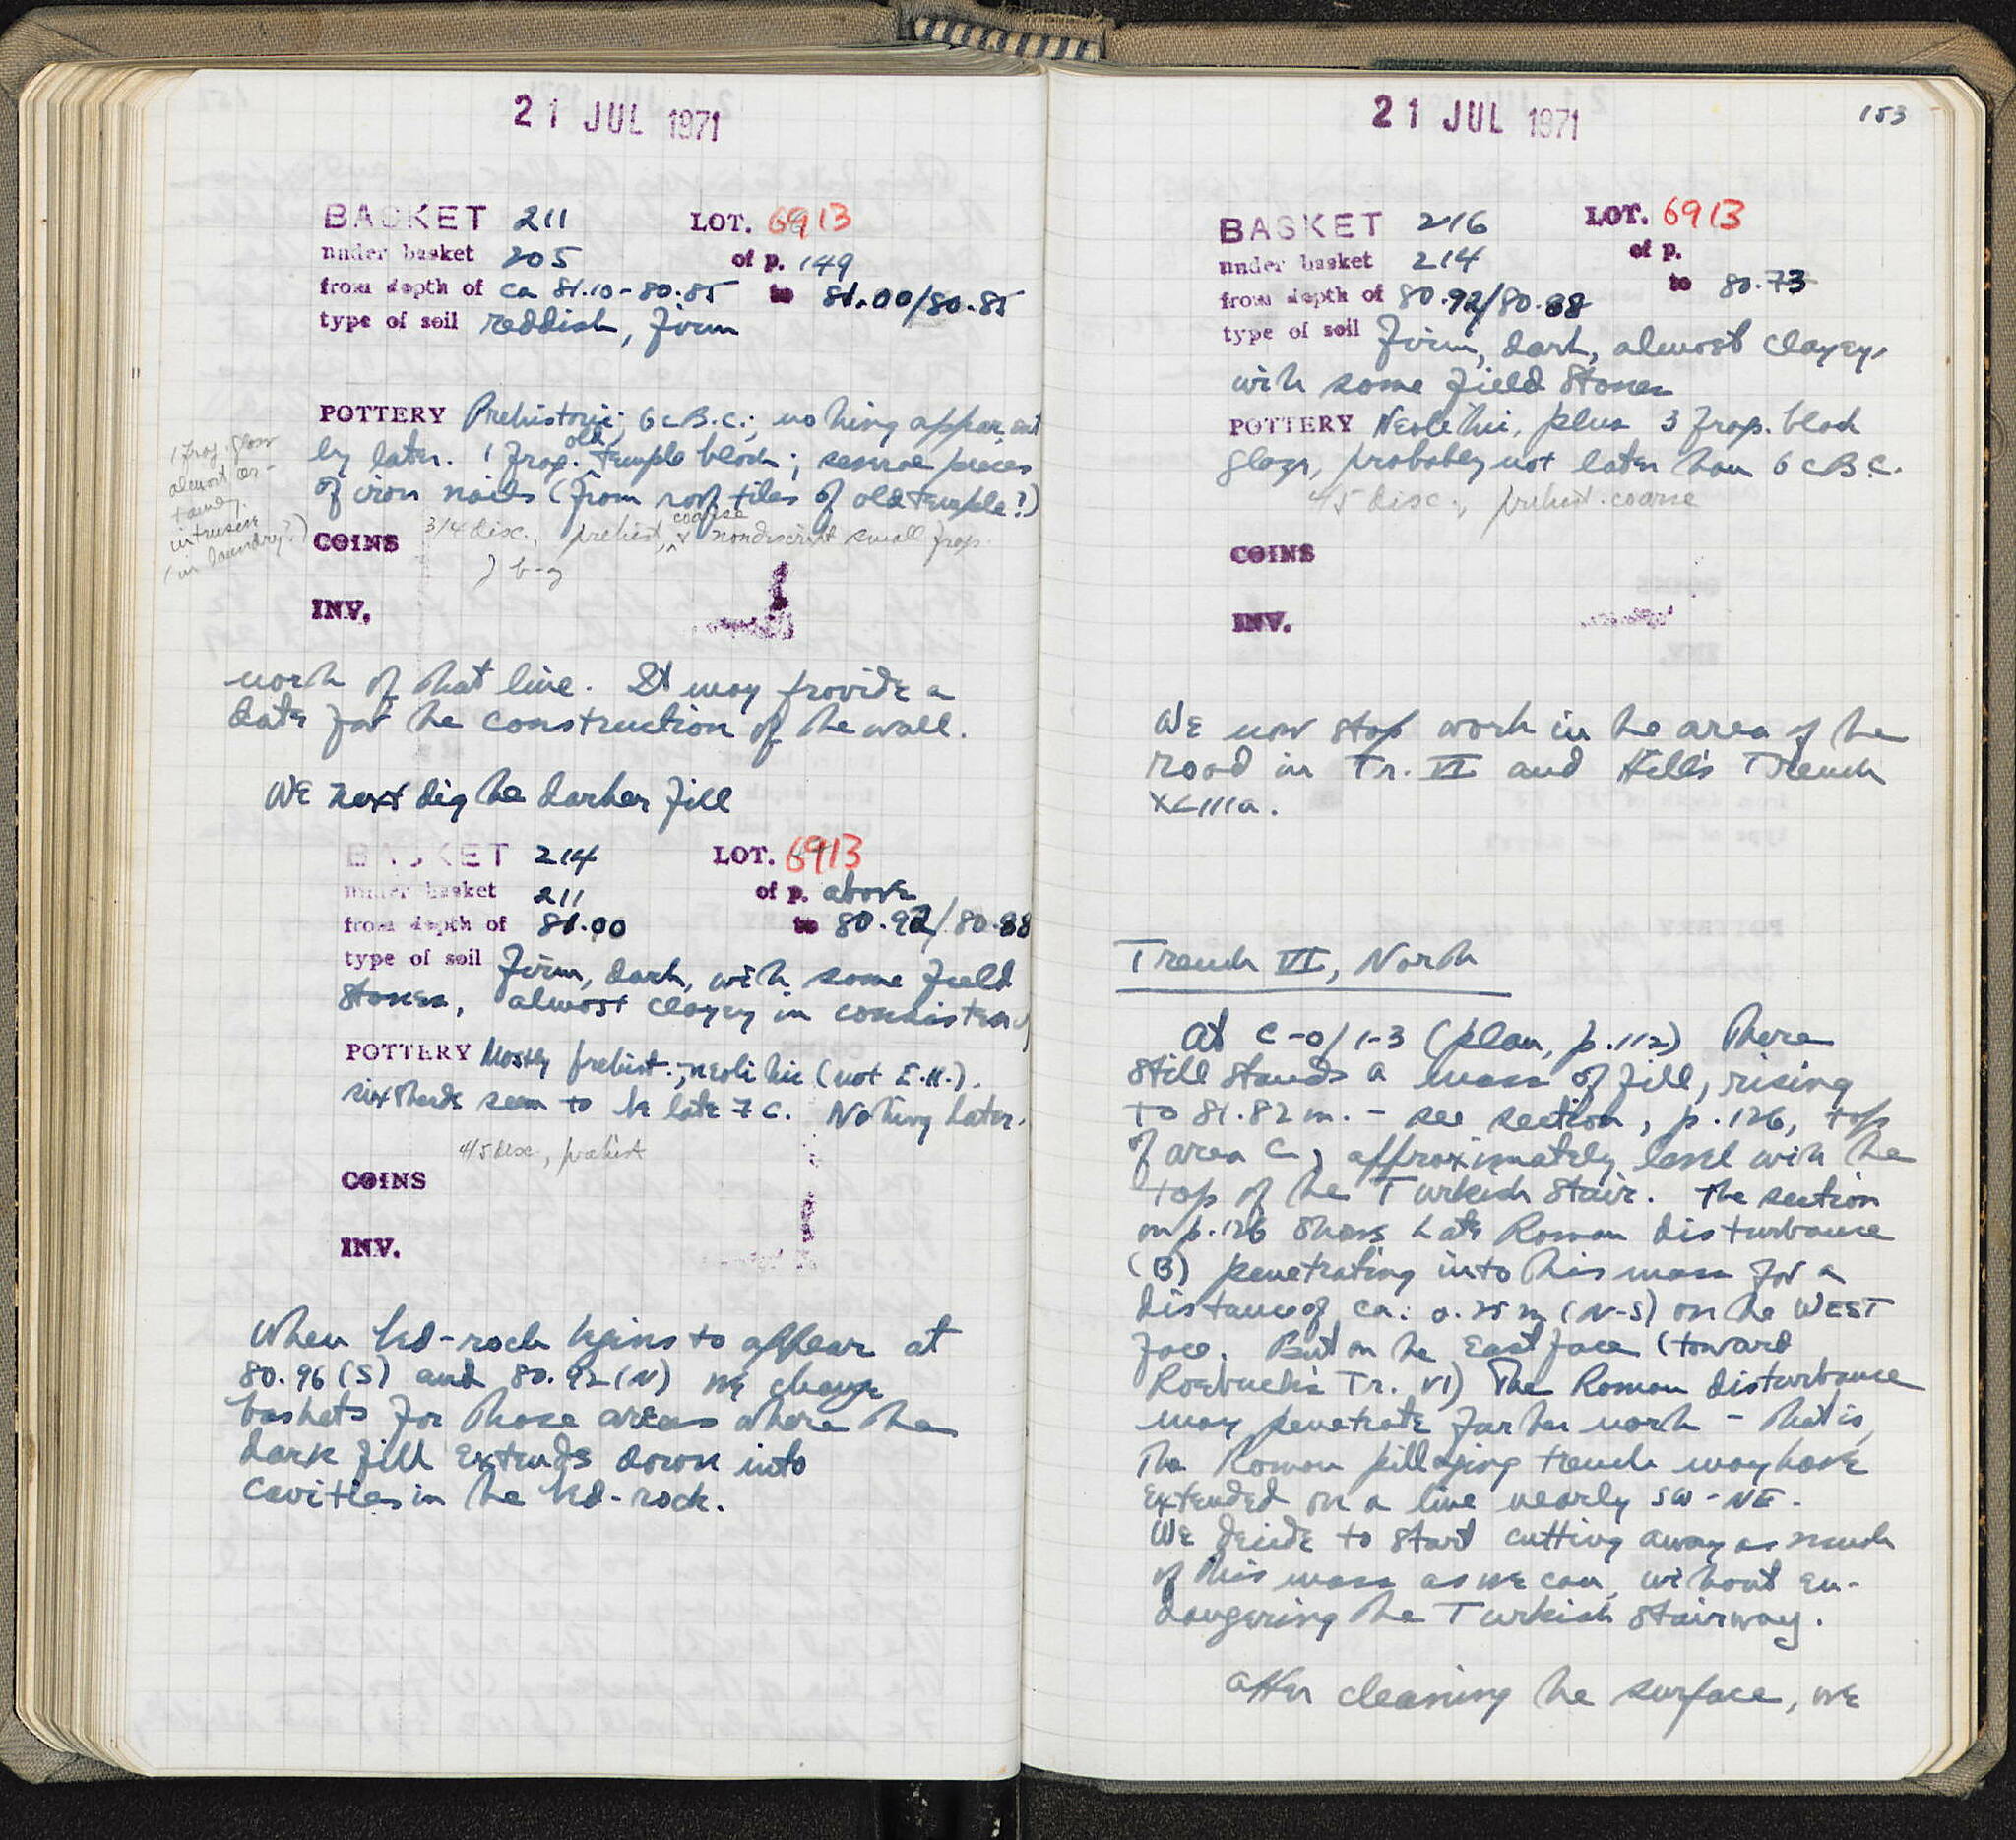 21 JUL 1971
BASKET 211 LOT. 6913
under basket 205 of p. 149
from depth of ca 81.10-80.85 to 81.00/80.85
type of soil reddish, firm
POTTERY Prehistoric; 6 c B.C.; nothing apparent
ly later. 1 frag. old temple block; several pieces
of iron nails (from roof tiles of old temple?)
1 frag. glass
almost cer-
tainly
intrusive
(in laundry?)
COINS 3/4 disc., prehist, coarse nondescript small frags.
} b-g
INV.
north of that line. It may provide a
date for the construction of the wall.
We next dig the darker fill
BASKET 214 LOT. 6913
under basket 211 of p. above
from depth of 81.00 to 80.92/80.88
type of soil firm, dark, with some field
stones, almost clayey in consistency
POTTERY Mostly prehist.; neolithic (not E.H.).
six sherds seem to be late 7 c. Nothing later.
4/5 disc, prehist
COINS
INV.
When bed-rock begins to appear at
80.96 (S) and 80.92 (N) we change
baskets for those areas where the
dark fill extends down into
cavities in the bed-rock.
21 JUL 1971
153
BASKET 216 LOT. 6913
under basket 214 of p.
from depth of 80.92/80.88 to 80.73
type of soil firm, dark, almost clayey,
with some field stones
POTTERY Neolithic, plus 3 frags. black
glaze, probably not later than 6 c B.C.
4/5 disc., prehist. coarse
COINS
INV.
We now stop work in the area of the
road in Tr. VI and Hill's Trench
XLIIIa.
Trench VI, North
At C-0/1-3 (plan, p. 112) There
still stands a mass of fill, rising
to 81.82 m. - see section, p. 126, top
of area C, approximately level with the
top of the Turkish stair. The section
on p. 126 shows Late Roman disturbance
(B) penetrating into this mass for a
distance of ca. 0.25 m (N-S) on the WEST
face. But on the East face (toward
Roebuck's Tr. VI) The Roman disturbance
may penetrate farther north - that is,
The Roman pillaging trench may have
extended on a line nearly SW-NE.
We decide to start cutting away as much
of this mass as we can, without en-
dangering the Turkish stairway.
After cleaning the surface, we